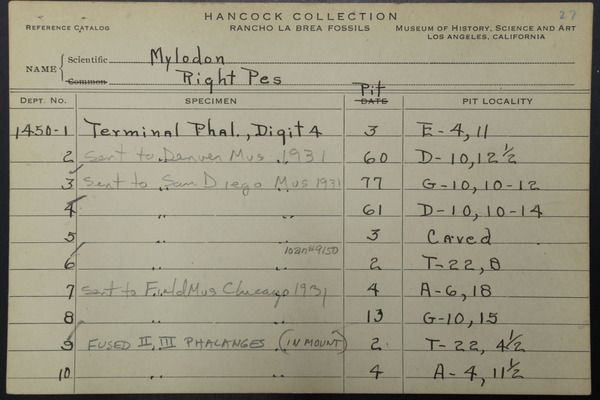 HANCOCK COLLECTION 27
REFERENCE CATALOG RANCHO LA BREA FOSSILS MUSEUM OF HISTORY, SCIENCE AND ART
LOS ANGELES, CALIFORNIA
NAME { Scientific Mylodon
Common Right Pes
Pit
DEPT. NO. SPECIMEN DATE PIT LOCALITY
1450-1 Terminal Phal., Digit 4 3 E-4, 11
2 sent to Denver Mus 1931 60 D-10, 12 1/2
3 sent to San Diego Mus 1931 77 G-10, 10-12
4 " " 61 D-10, 10-14
5 " " 3 Caved
loan #9150
6 " " 2 T-22, 8
7 sent to Field Mus Chicago 1931 4 A-6, 18
8 " " 13 G-10, 15
9 FUSED II, III PHALANGES (IN MOUNT) 2 T-22, 4 1/2
10 " " 4 A-4, 11 1/2